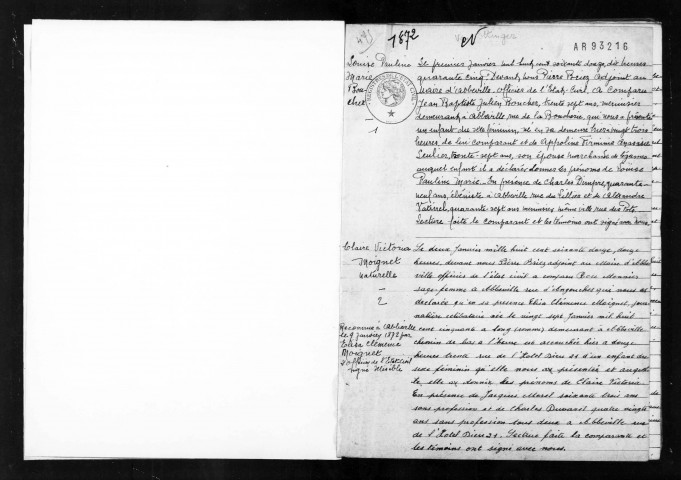 475
1872
N
AR 93216
Louise Pauline
Marie
Boucher
1
Le premier Janvier mil huit cent soixante douze, dix heures
quarante cinq. Devant nous Pierre Briez adjoint au
maire d'Abbeville, officier de l'Etat Civil, a comparu
Jean Baptiste Julien Boucher, trente sept ans, menuisier
demeurant à Abbeville rue de la Boucherie, qui nous a présenté
un enfant du sexe féminin, né en sa demeure hier vingt trois
heures de lui comparant et de Appoline Firmine
trente-sept ans, son épouse marchande de légumes
auquel enfant il a déclaré donner les prénoms de Louise
Pauline Marie. En présence de Charles quarante
neuf ans, ébéniste à Abbeville rue et de Alexandre
quarante sept ans menuisier même ville rue des Pots
Lecture faite le comparant et les témoins ont signé avec nous.
Claire Victoria
Moignet
naturelle
2
Reconnue à Abbeville
le 9 Janvier 1872 par
Elisa Clémence
Moignet
L'officier de l'Etat civil
signé illisible
Le deux Janvier mille huit cent soixante douze, douze
heures, devant nous Pierre Briez adjoint au Maire d'Abbe
ville officier de l'état civil a comparu Rose Monnier
sage-femme à Abbeville rue d'Angouches qui nous a
déclaré qu'en sa présence Elisa Clémence Moignet, jour
nalière célibataire née le vingt sept Janvier mil huit
cent cinquante à Long (Somme) demeurant à Abbeville
chemin de bas à l'heure est accouchée hier à douze
heures trente rue de l'Hotel Dieu 21 d'un enfant du
sexe féminin qu'elle nous a présenté et auquel
elle a donné les prénoms de Claire Victoria
En présence de Jacques Morel soixante trois ans
sans profession et de Charles Dumont quatre vingts
ans sans profession tous deux à Abbeville rue
de l'Hotel Dieu 21. Lecture faite la comparante et
les témoins ont signé avec nous.